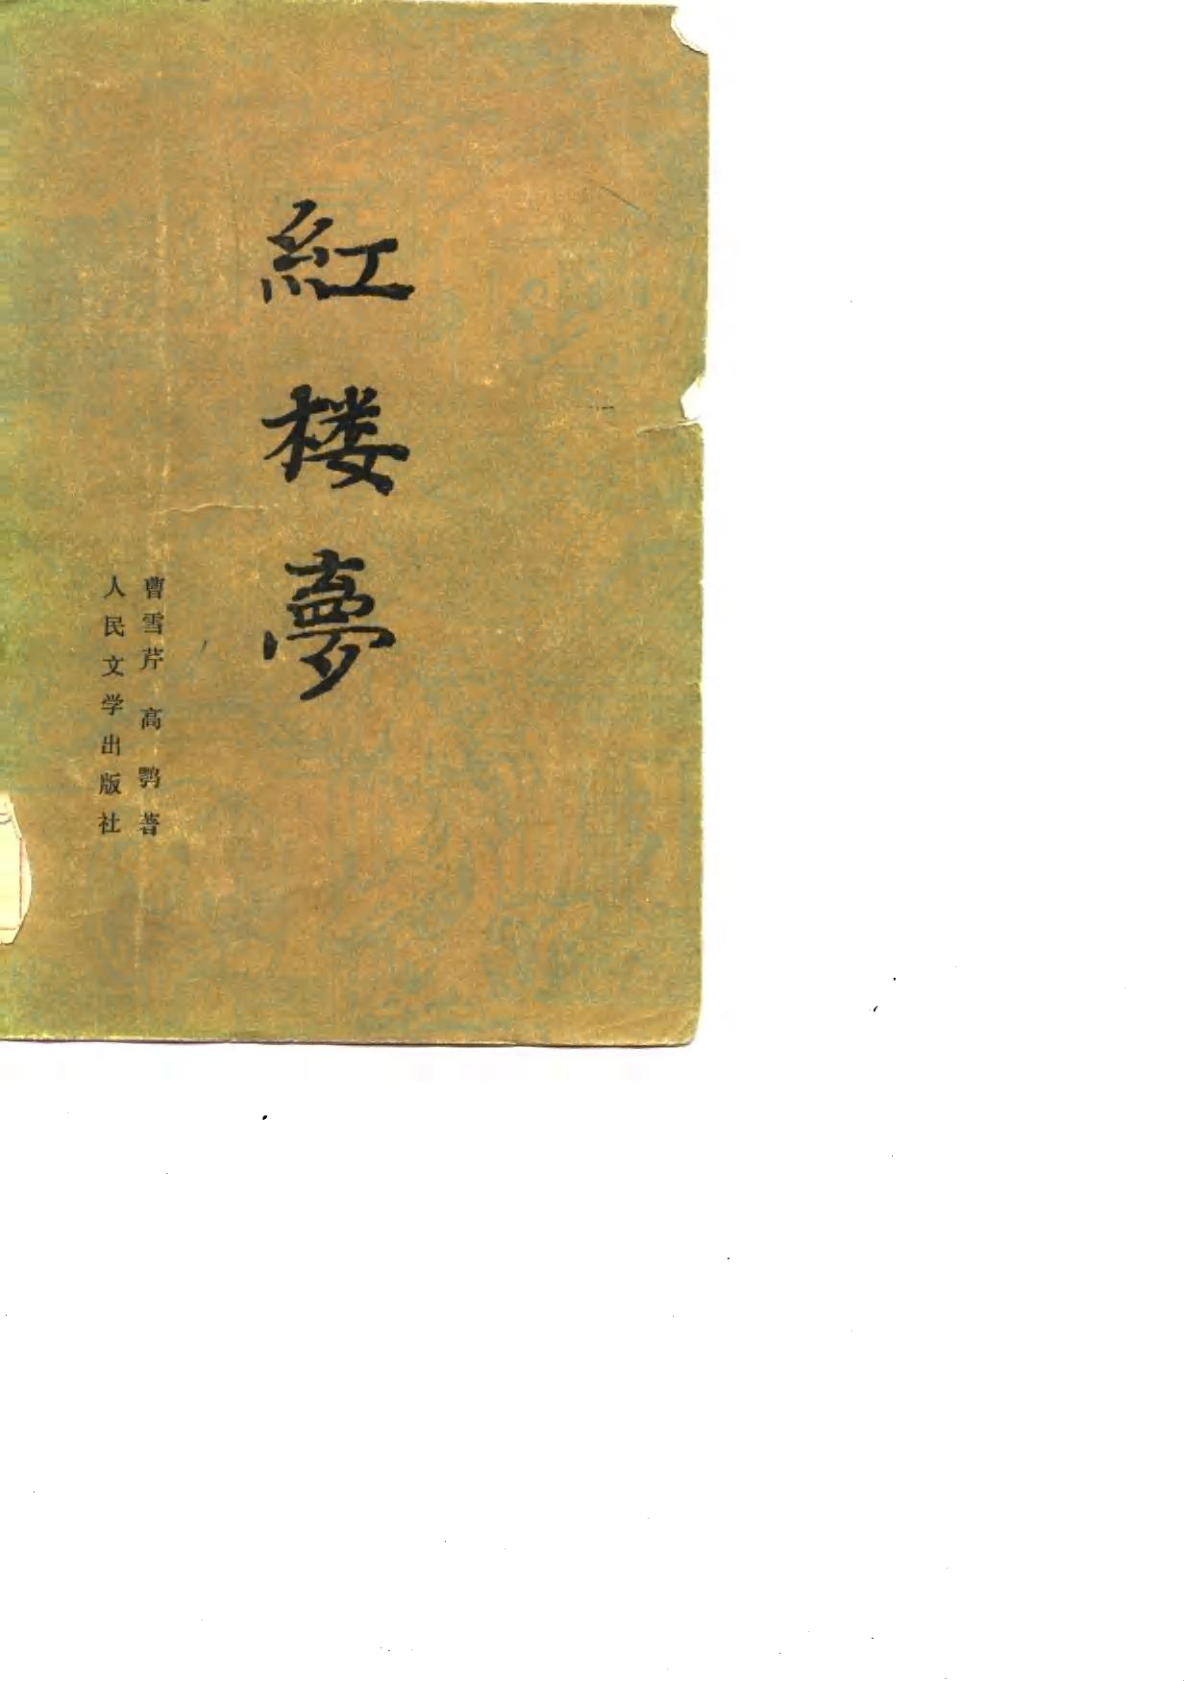 紅楼夢
曹雪芹 高鹗著
人民文学出版社